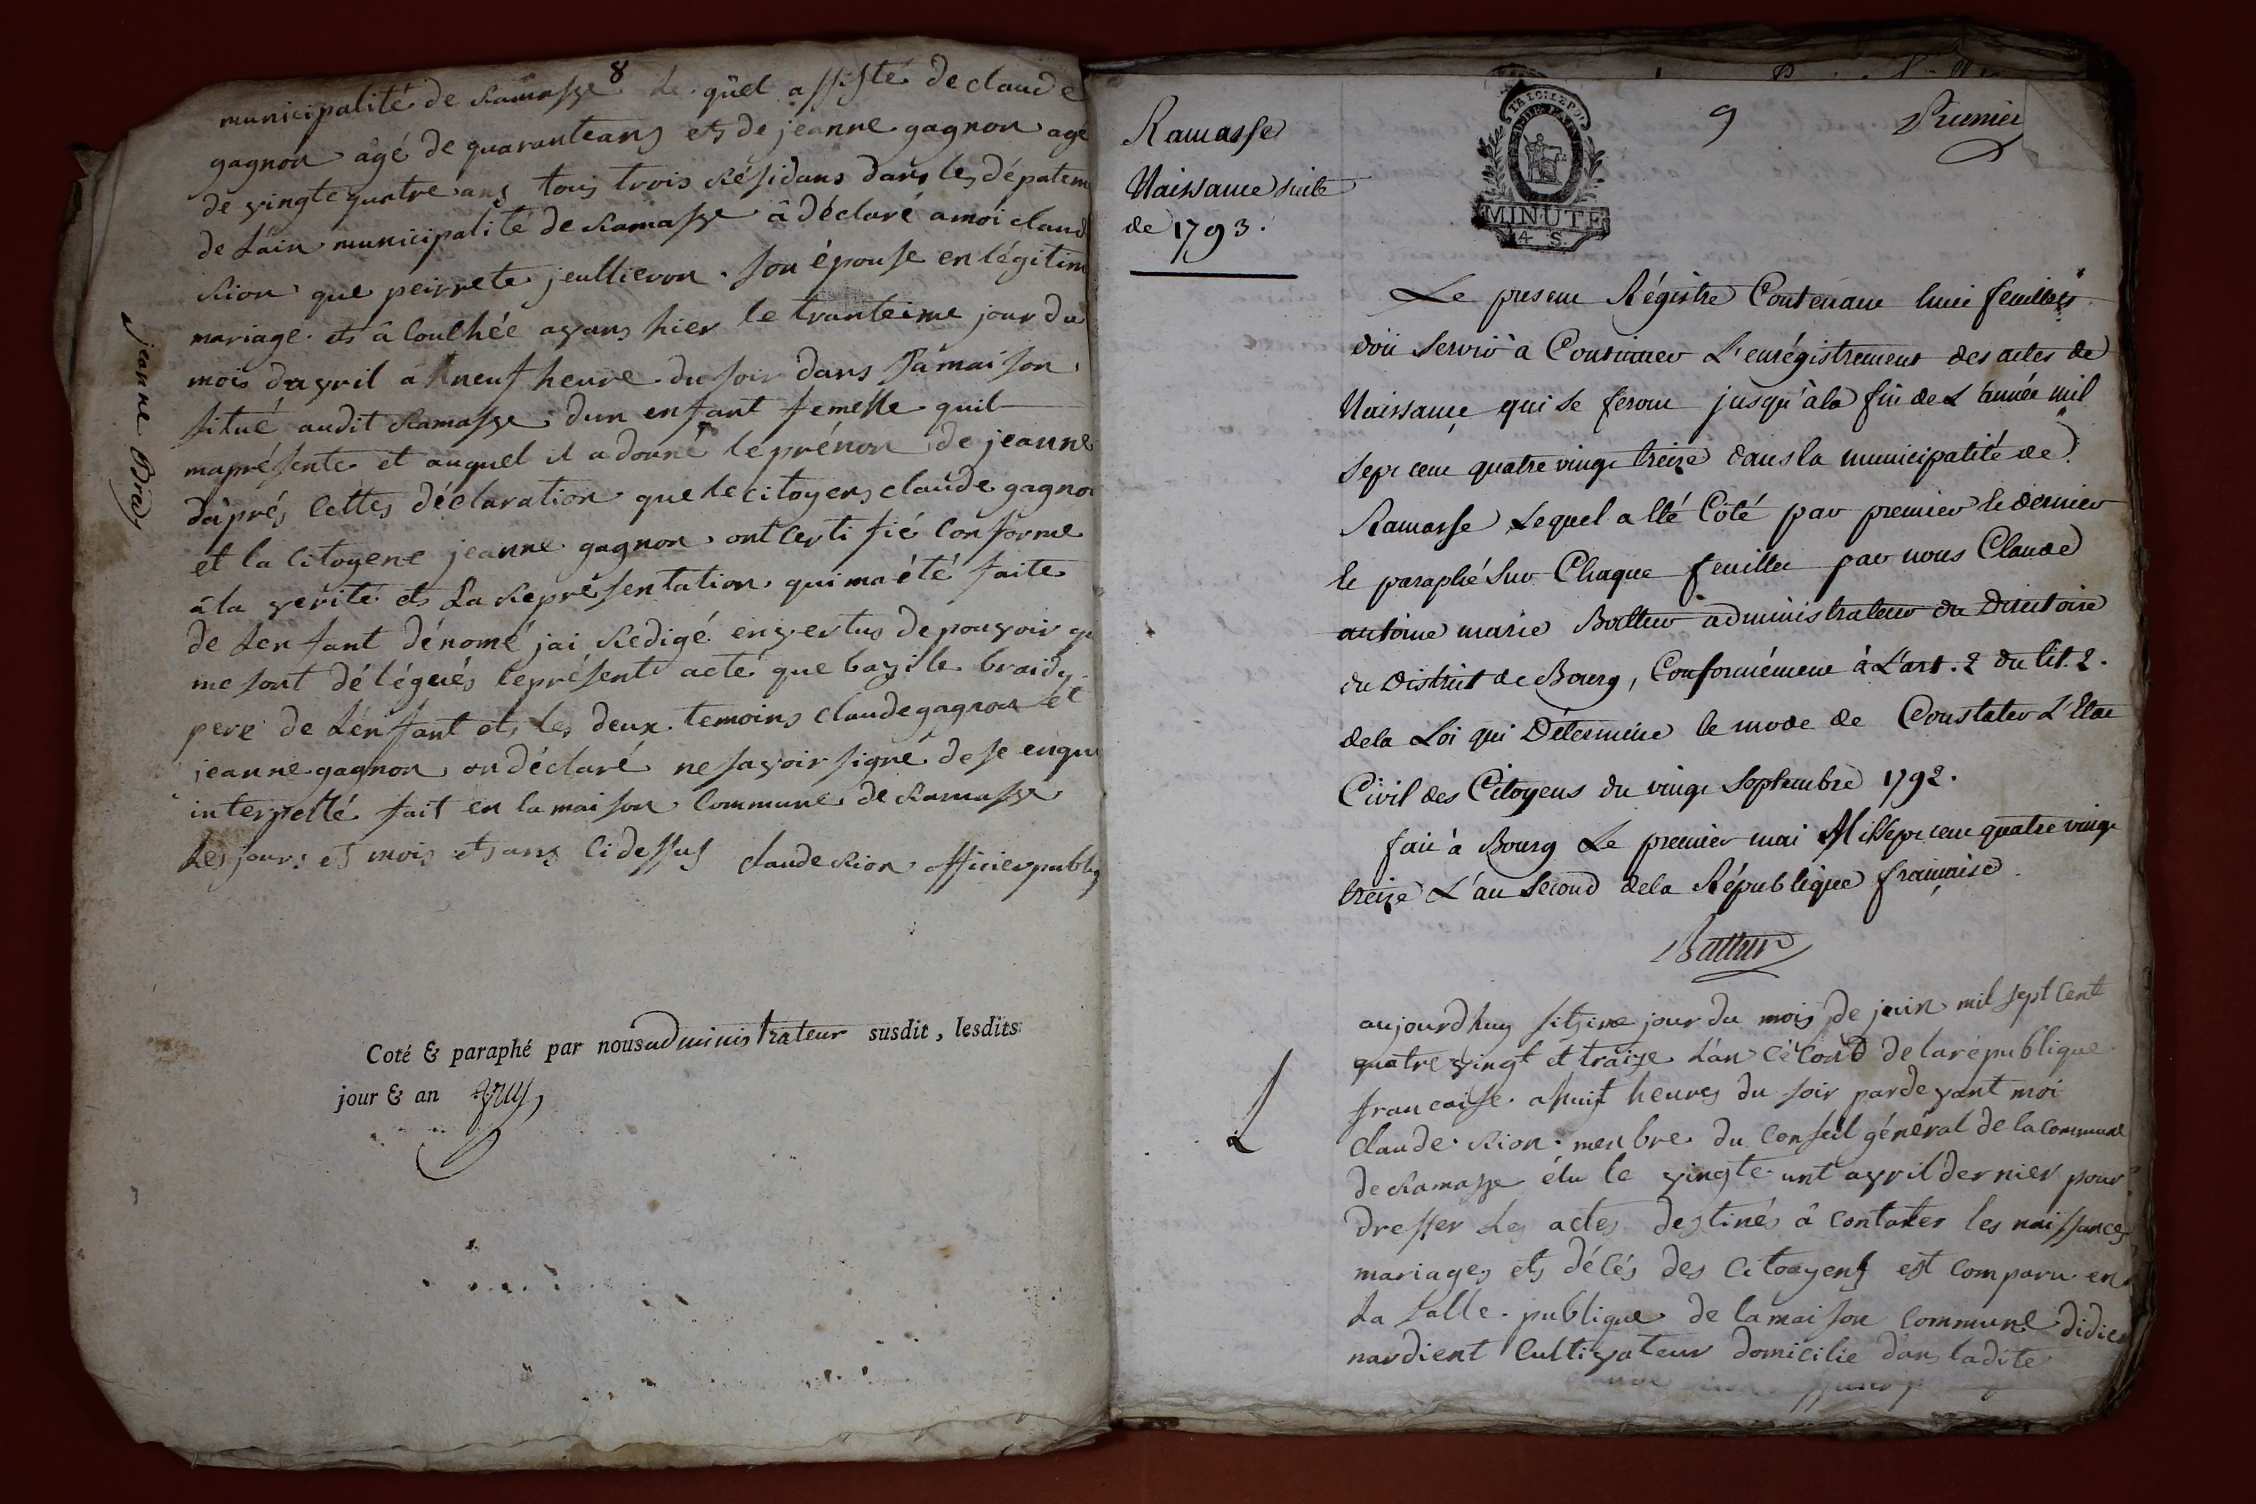 8
municipalité de Ramasse le quel assisté de claude
gagnon agé de quaranteans et de jeanne gagnon agé
de vingte quatre ans tous trois Résidans dans les dépatem
de Lain municipalité de Ramasse â déclaré amoi claud
Rion que peirrete jeullieron son épouse en légitim
mariage et â Coulhée avans hier le tranteime jour du
mois davril â neuf heure du soir dans sa maison
situé audit Ramasse dun enfant femelle quil
maprésente et auquel il a donné le prénon de jeanne
daprés Cettes déclaration que le citoyens claude gagnon
et la Citoyene jeanne gagnon ont Certifié Conforme
â la verite et La Représentation qui ma été faite
de Lenfant dénomé jai Redigé en vertus de pouvoir qu
me sont délégués le présent acte que bazile braidy
pere de Lenfant et les deux temoins claude gagnon et
jeanne gagnon on déclaré ne savoir signé de se enqui
interpellé fait en la maison Commune de Ramasse
Les jours et mois et ans Cidessus claude Rion officier publiq
jeanne Brady
Coté & paraphé par nous administrateur susdit, lesdits
jour & an
Ramasse
Naissance suite
de 1793.
MINUTE
4. S.
9
Premier
Le present Régistre Contenant huit feuillets
doit servir à Continuer L'enrégistrement des actes de
Naissance qui se feront jusqu'à la fin de L'année mil
sept cent quatre vingt treize dans la municipalité de
Ramasse Lequel a Eté Côté par premier Et dernier
Et paraphé sur Chaque feuillet par nous Claude
antoine marie Battur administrateur du Directoire
du District de Bourg, Conformément à L'art. 2 du tit. 2.
de la Loi qui Détermine le mode de Constater L'Etat
Civil des Citoyens du vingt Septembre 1792.
fait à Bourg Le premier mai Mil sept cent quatre vingt
treize L'an Second de la République française
Battur
aujourdhuy sitzime jour du mois de juin mil sept Cent
quatre vingt et traize L'an Cécond de la république
francaise a huit heures du soir pardevant moi
Claude Rion menbre du Conseil général de la Commune
de Ramasse élu le vingte unt avril dernier pour
dresser Les actes destinés â Contater les naissances
mariages et décés des Citoayens est Comparu en
La salle publique de la maison Commune didier
nardient Cultivateur domicilie dans ladite